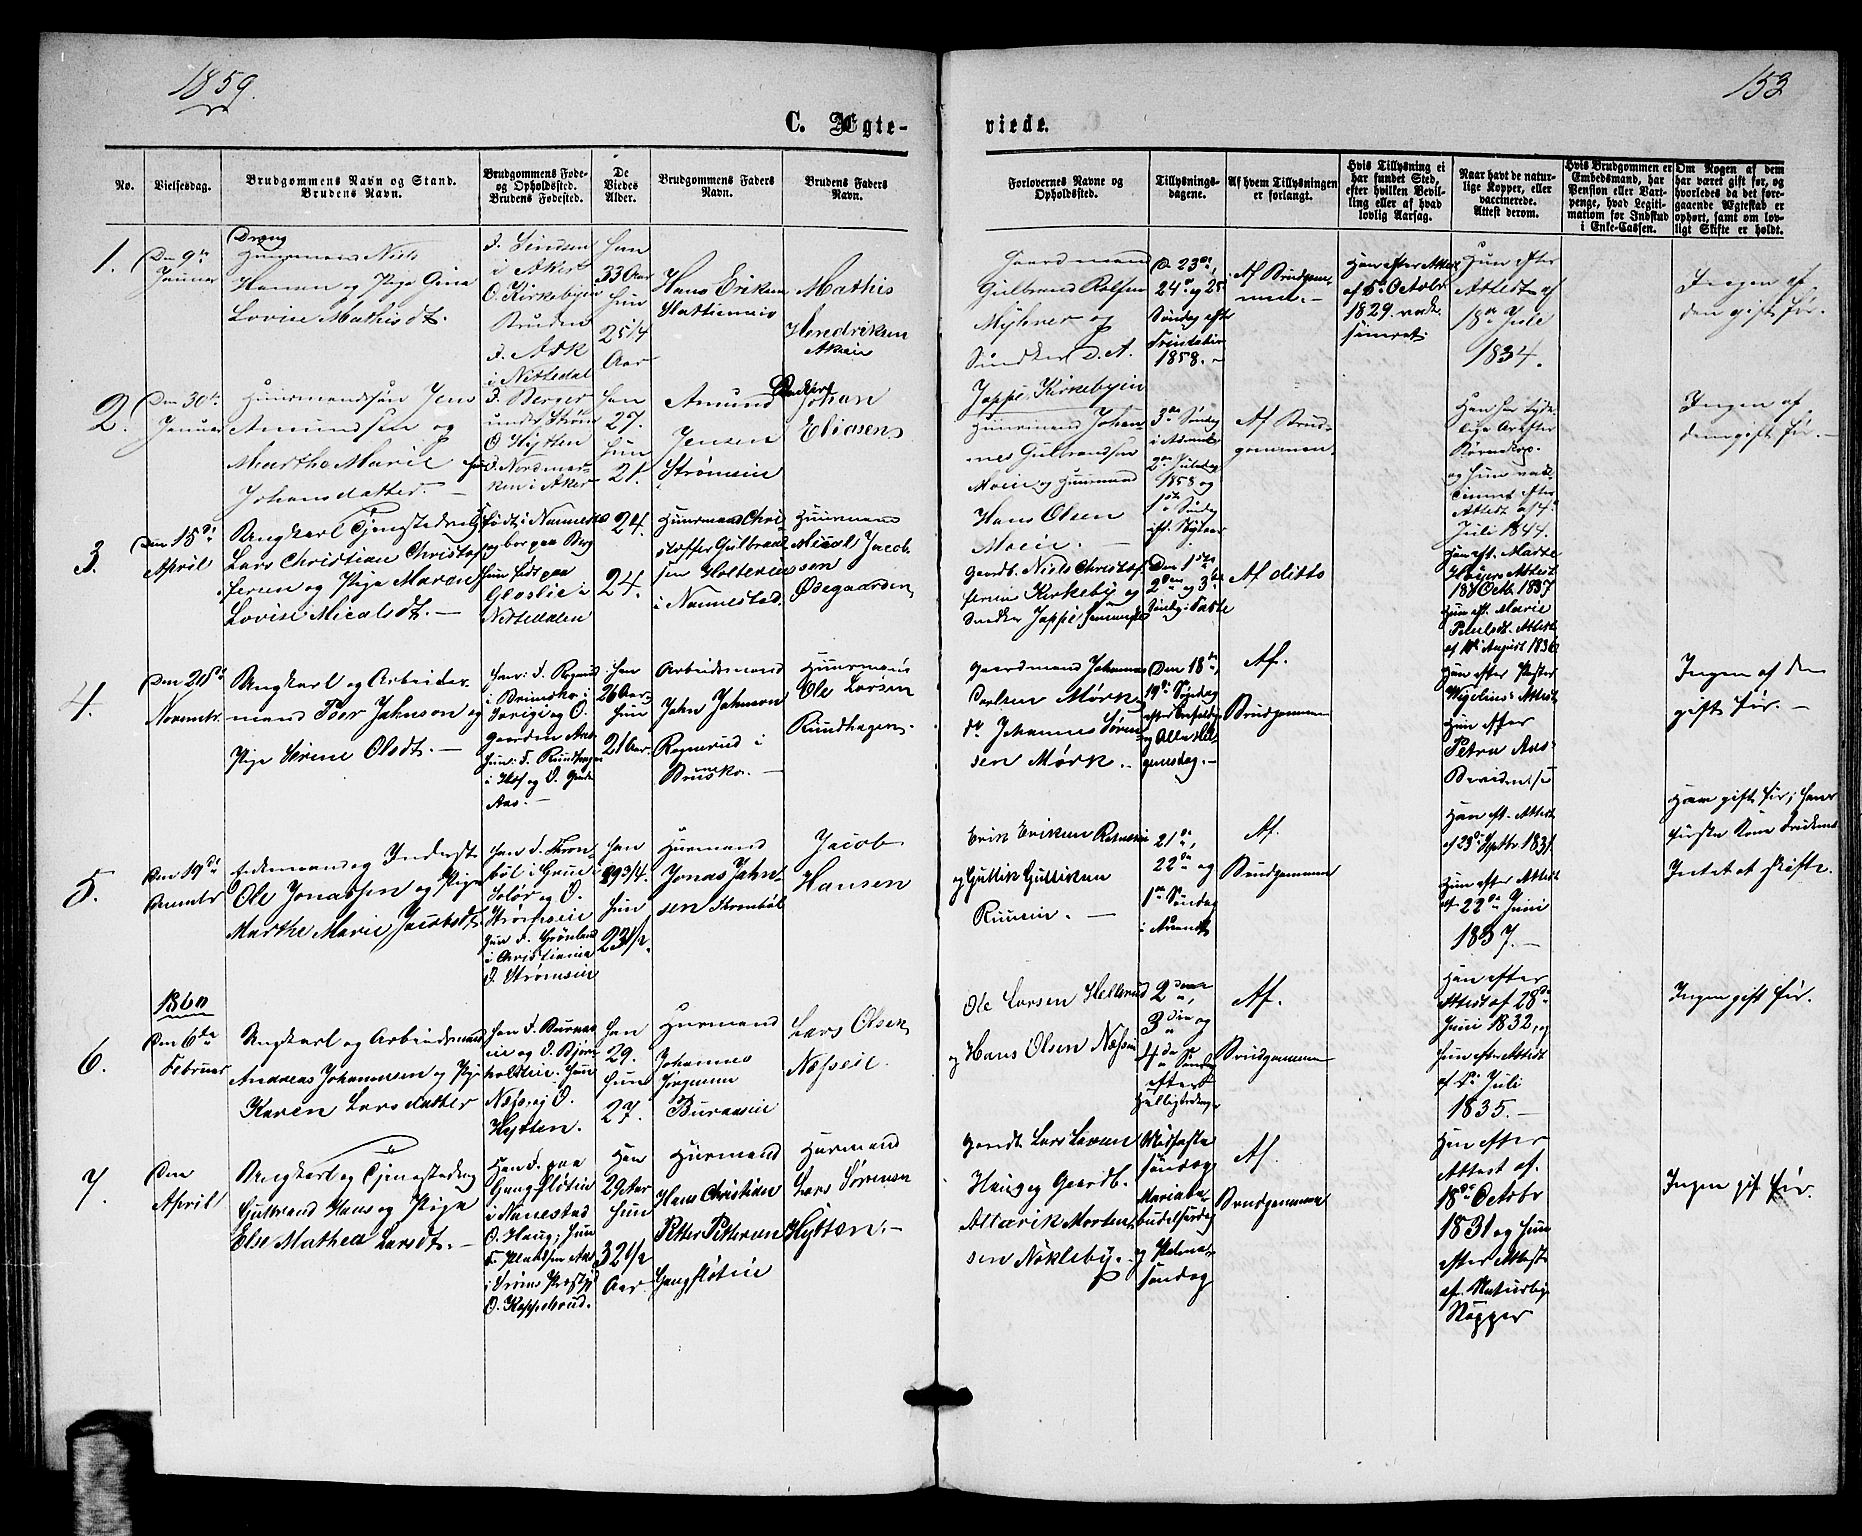 1859.
153
C. Ægte-
viede.
No.
Vielsesdag.
Brudgommens Navn og Stand.
Brudens Navn.
Brudgommens Føde-
og Opholdssted.
Brudens Fødested.
De
Viedes
Alder.
Brudgommens Faders
Navn.
Brudens Faders
Navn.
Forlovernes Navne og
Opholdssted.
Tillysnings-
dagene.
Af hvem Tillysningen
er forlangt.
Hvis Tillysning ei
har fundet Sted,
efter hvilken Bevil-
ling eller af hvad
lovlig Aarsag.
Naar havt de natur-
lige Kopper, eller
vaccinerede.
Attest derom.
Hvis Brudgommen er
Embedsmand, har
Pension eller Vart-
penge, hvad Legiti-
mation for Indskud
i Enke-Cassen.
Om Nogen af dem
har været gift før, og
hvorledes da det fore-
gaaende Ægteskab er
ophørt, samt om lov-
ligt Skifte er holdt.
1.
Den 9de
Januar
Niels
Hansen og Pige Gina
Lovise Mathisdt.
i Aker
O. Kirkebyeie
Bruden
f. Ask
i Nittedal
Han
33 Aar
Hun
25 1/4
Aar
Hans Eriksen
Mathis
Hendriksen
Gaardmand
Gulbrand Rolfsen
Myhrer og
D. 23de,
24de og 25
Søndag efter
Trinitatis
1858.
Af Brudgom-
men.
Han efter Attest
af 5te Octobr
1829.
Hun efter
Attest af
18de Juli
1834.
Ingen af
dem gift før.
2.
Den 30te
Januar
Huusmandsøn Jens
Amundsen og
Martha Marie
Johansdatter.
under Strøm
O. Hytten
f. Nordmar-
ken i Aker
Han
27.
Hun
21.
Amund
Jensen
Strømseie
Johan
Eliasen
Jappe, Kirkebyeie
Huusmand Johan-
nes Gulbrandsen
Moeie og Huusmand
Hans Olsen
Moeie.
3die Søndag
i Advent
2den Juledag
1858 og
1ste Søndag
eft. Nytaar
Af Brud-
gommen.
og hun
efter
Attest af 4de
Juli 1844.
Ingen af
dem gift før.
3.
Den 15de
April
Ungkarl Tjenestedreng
Lars Christian Christof-
fersen og Pige Maren
Lovise Micalsdt.
født i Nannestad
og bor paa Berg
Hun født paa
Glaslie i
Nittedalen
24.
24.
Huusmand Chri-
stoffer Gulbrand-
sen Holtereie
i Nannestad.
Huusmand
Mical Jacob-
sen
Ødegaarden
Gaardb. Niels Christof-
fersen Kirkeby og
Snedker Jappe,
Den 1ste
2den og 3die
Søndag i Faste
Af ditto
Han eft.
Attest
18de Octb. 1837
Hun eft. Marie
Paulsdt. Attest
af 10de August 1836
4.
Den 28de
Novembr.
Ungkarl og Arbeider-
mand Peer Johnson og
Pige Serine Olsdt.
Han: f. Rognrud
i Brunsko i
Sverige og O.
gaarden Aas
Hun: f. Ruudhagen
i Hof og O. Gaarden
Aas.
Han
26 Aar
Hun
21 Aar
Arbeidsmand
John Johnson
Rognrud i
Brunsko.
Huusmand
Ole Larsen
Ruudhagen.
Gaardmand Johannes
Carlsen Mørk
do Johannes Søren-
sen Mørk.
Den 18de,
19de Søndag
efter Trefoldigh.
og Alle Hel-
gensdag.
Af.
Brudgommen
Han efter Pastor
Attest
Hun efter
Petra Aas-
Ingen af dem
gift før.
5.
Den 19de
Decembr
Enkemand og Inderst
Ole Jonassen og Pige
Marthe Marie Jacobsdt.
Han f. Strøm-
bøl i Grue
Solør og O.
Strømseie
Hun f. Grønland
i Christiania
O. Strømseie
Han
39 3/4.
Hun
23 1/2.
Huusmand
Jonas John-
sen Strømbøl
Jacob
Hansen
Erik Eriksen
og Gullik Gulliksen
Ruueie.
21de,
22de og
1ste Søndag
i Advent
Af.
Brudgommen
Han eft. Attest
af 23de Septbr 1831
Hun efter Attest
af 22de Juni
1837.
Ham gift før; hans
første Kone
Intet at skifte.
1860
6.
Den 6te
Februar
Ungkarl og Arbeidsmand
Andreas Johannesen og Pige
Karen Larsdatter
Han f. Buraas-
eie og O. Bjørn-
holteie. Hun
Næsseie O.
Hytten.
Han
29.
Hun
27.
Huusmand
Johannes
Jørgensen
Buraaseie
Lars Olsen
Næsseie.
Ole Larsen Hellerud
og Hans Olsen Næsseie
2den,
3die og
4de Søndag
efter
Helligtrekong.
Af.
Brudgommen
Han efter
Attest af 28de
Juni 1832, og
Hun efter Attest
af 5te Juli
1835.
Ingen gift før.
7.
Den
April
Ungkarl og Tjenestedreng
Gulbrand Hans og Pige
Else Mathea Larsdt.
Han f. paa
Gangfløteie
i Nanestad
O. Haug; Hun
f. Pladsen Aas
i Urøms Præstgj.
O. Koppelrud.
Han
29 Aar
Hun
32 1/2
Aar.
Huusmand
Hans Christian
Petter Pettersen
Gangfløteie
Huusmand
Lars Sørensen
Hytten.
Gaardb. Lars Larsen
Haug og Gaardb.
Morten-
sen Nøkleby.
Midfaste
Søndag
Mariabe-
budelsesdag
og Palme-
søndag
Af.
Brudgommen
Han efter
Attest af.
18de Octobr
1831 og hun
efter Attest
af. Naturlige
Kopper
Ingen gift før.